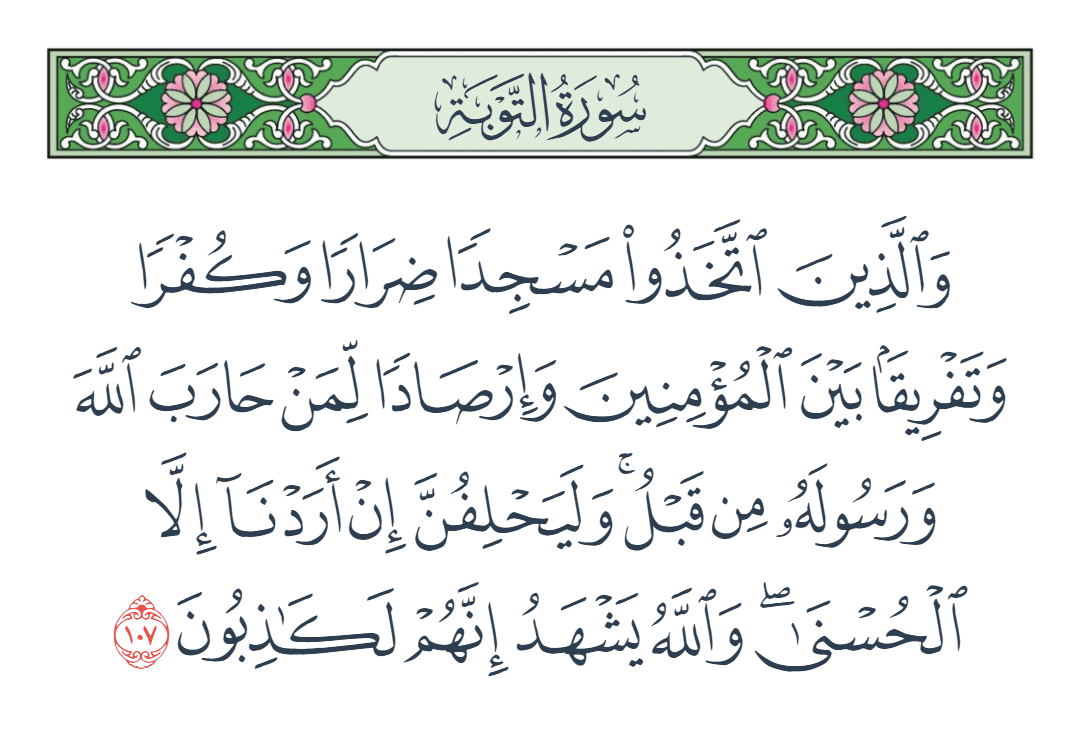 سُورَةُ التَّوْبَةِ
وَٱلَّذِينَ ٱتَّخَذُوا۟ مَسْجِدًا ضِرَارًا وَكُفْرًا
وَتَفْرِيقًۢا بَيْنَ ٱلْمُؤْمِنِينَ وَإِرْصَادًا لِّمَنْ حَارَبَ ٱللَّهَ
وَرَسُولَهُۥ مِن قَبْلُ ۚ وَلَيَحْلِفُنَّ إِنْ أَرَدْنَآ إِلَّا
ٱلْحُسْنَىٰ ۖ وَٱللَّهُ يَشْهَدُ إِنَّهُمْ لَكَـٰذِبُونَ ١٠٧